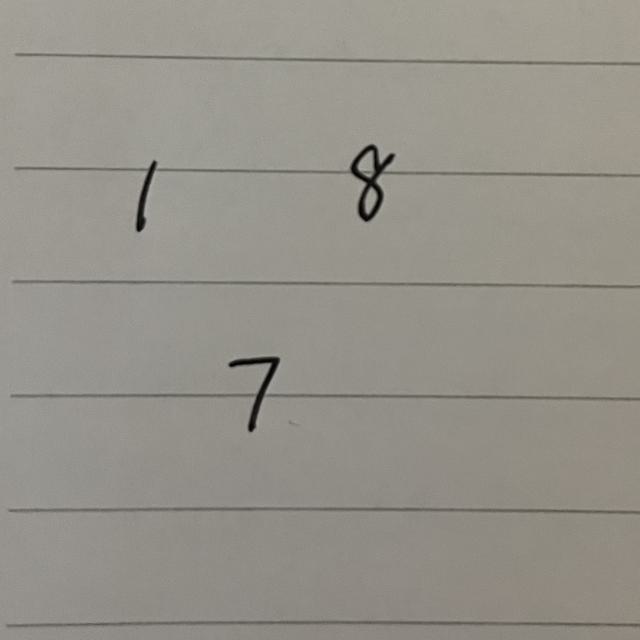 1 8
7